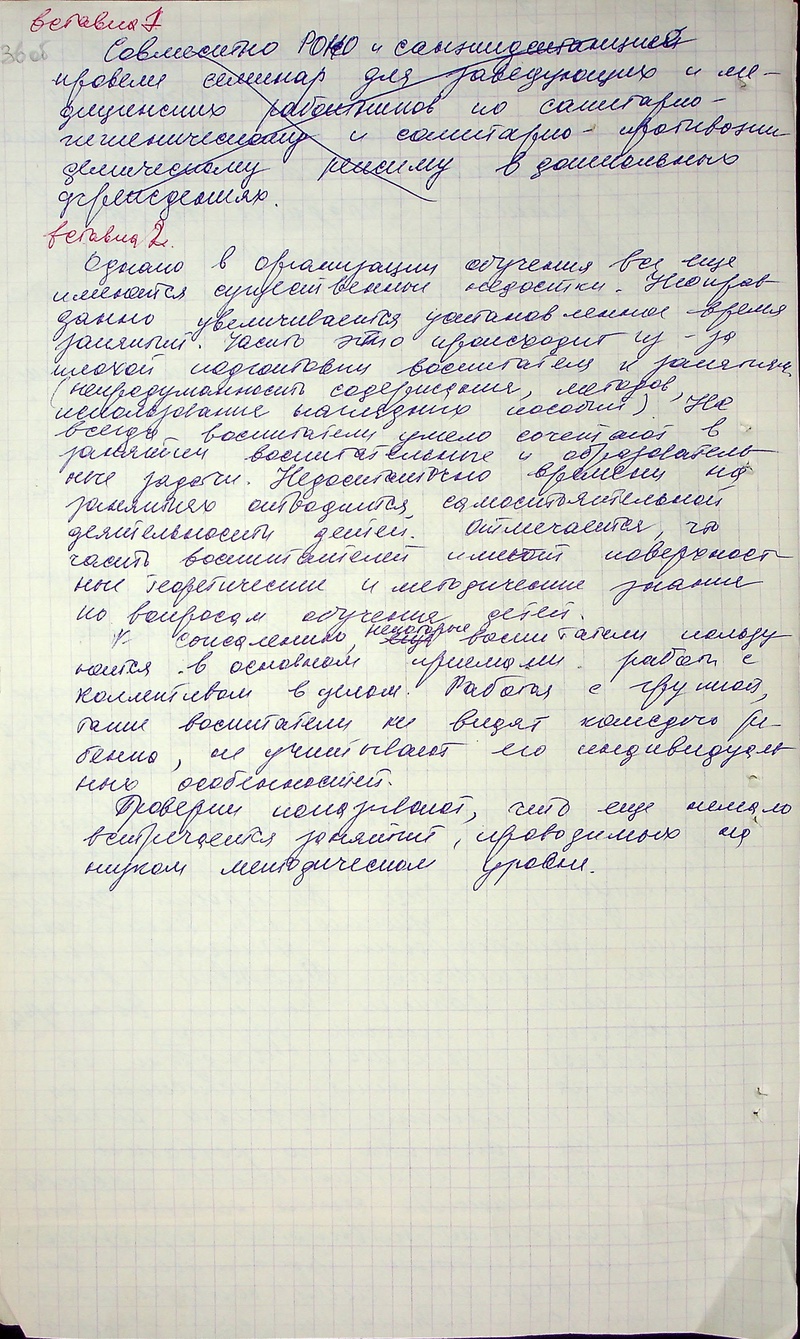 вставка 1
36 об
Совместно РОНО и санэпидстанцией
провели семинар для заведующих и ме-
дицинских работников по санитарно-
гигиеническому и санитарно- противоэпи
демическому режиму в дошкольных
учреждениях.
вставка 2.
Однако в организации обучения все еще
имеются существенные недостки. Неоправ
данно увеличивается установленное время
занятий. Часто это происходит из-за
плохой подготовки воспитателя к занятиям
(непродуманность содержания, методов,
использование наглядных пособий) Не
всегда воспитатели умело сочетают в
занятии воспитательные и образователь
ные задачи. Недостаточно времени на
занятиях отводится самостоятельной
деятельности детей. Отмечается, что
часть воспитателей имеют поверхност
ные теоретические и методические знания
по вопросам обучения детей.
К сожалению, некоторые воспитатели пользу
ются в основном приемами работы с
коллективом в целом. Работая с группой,
такие воспитатели не видят каждого ре
бенка, не учитывают его индивидуаль
ных особенностей.
Проверки показывают, что еще немало
встречается занятий, проводимых на
низком методическом уровне.